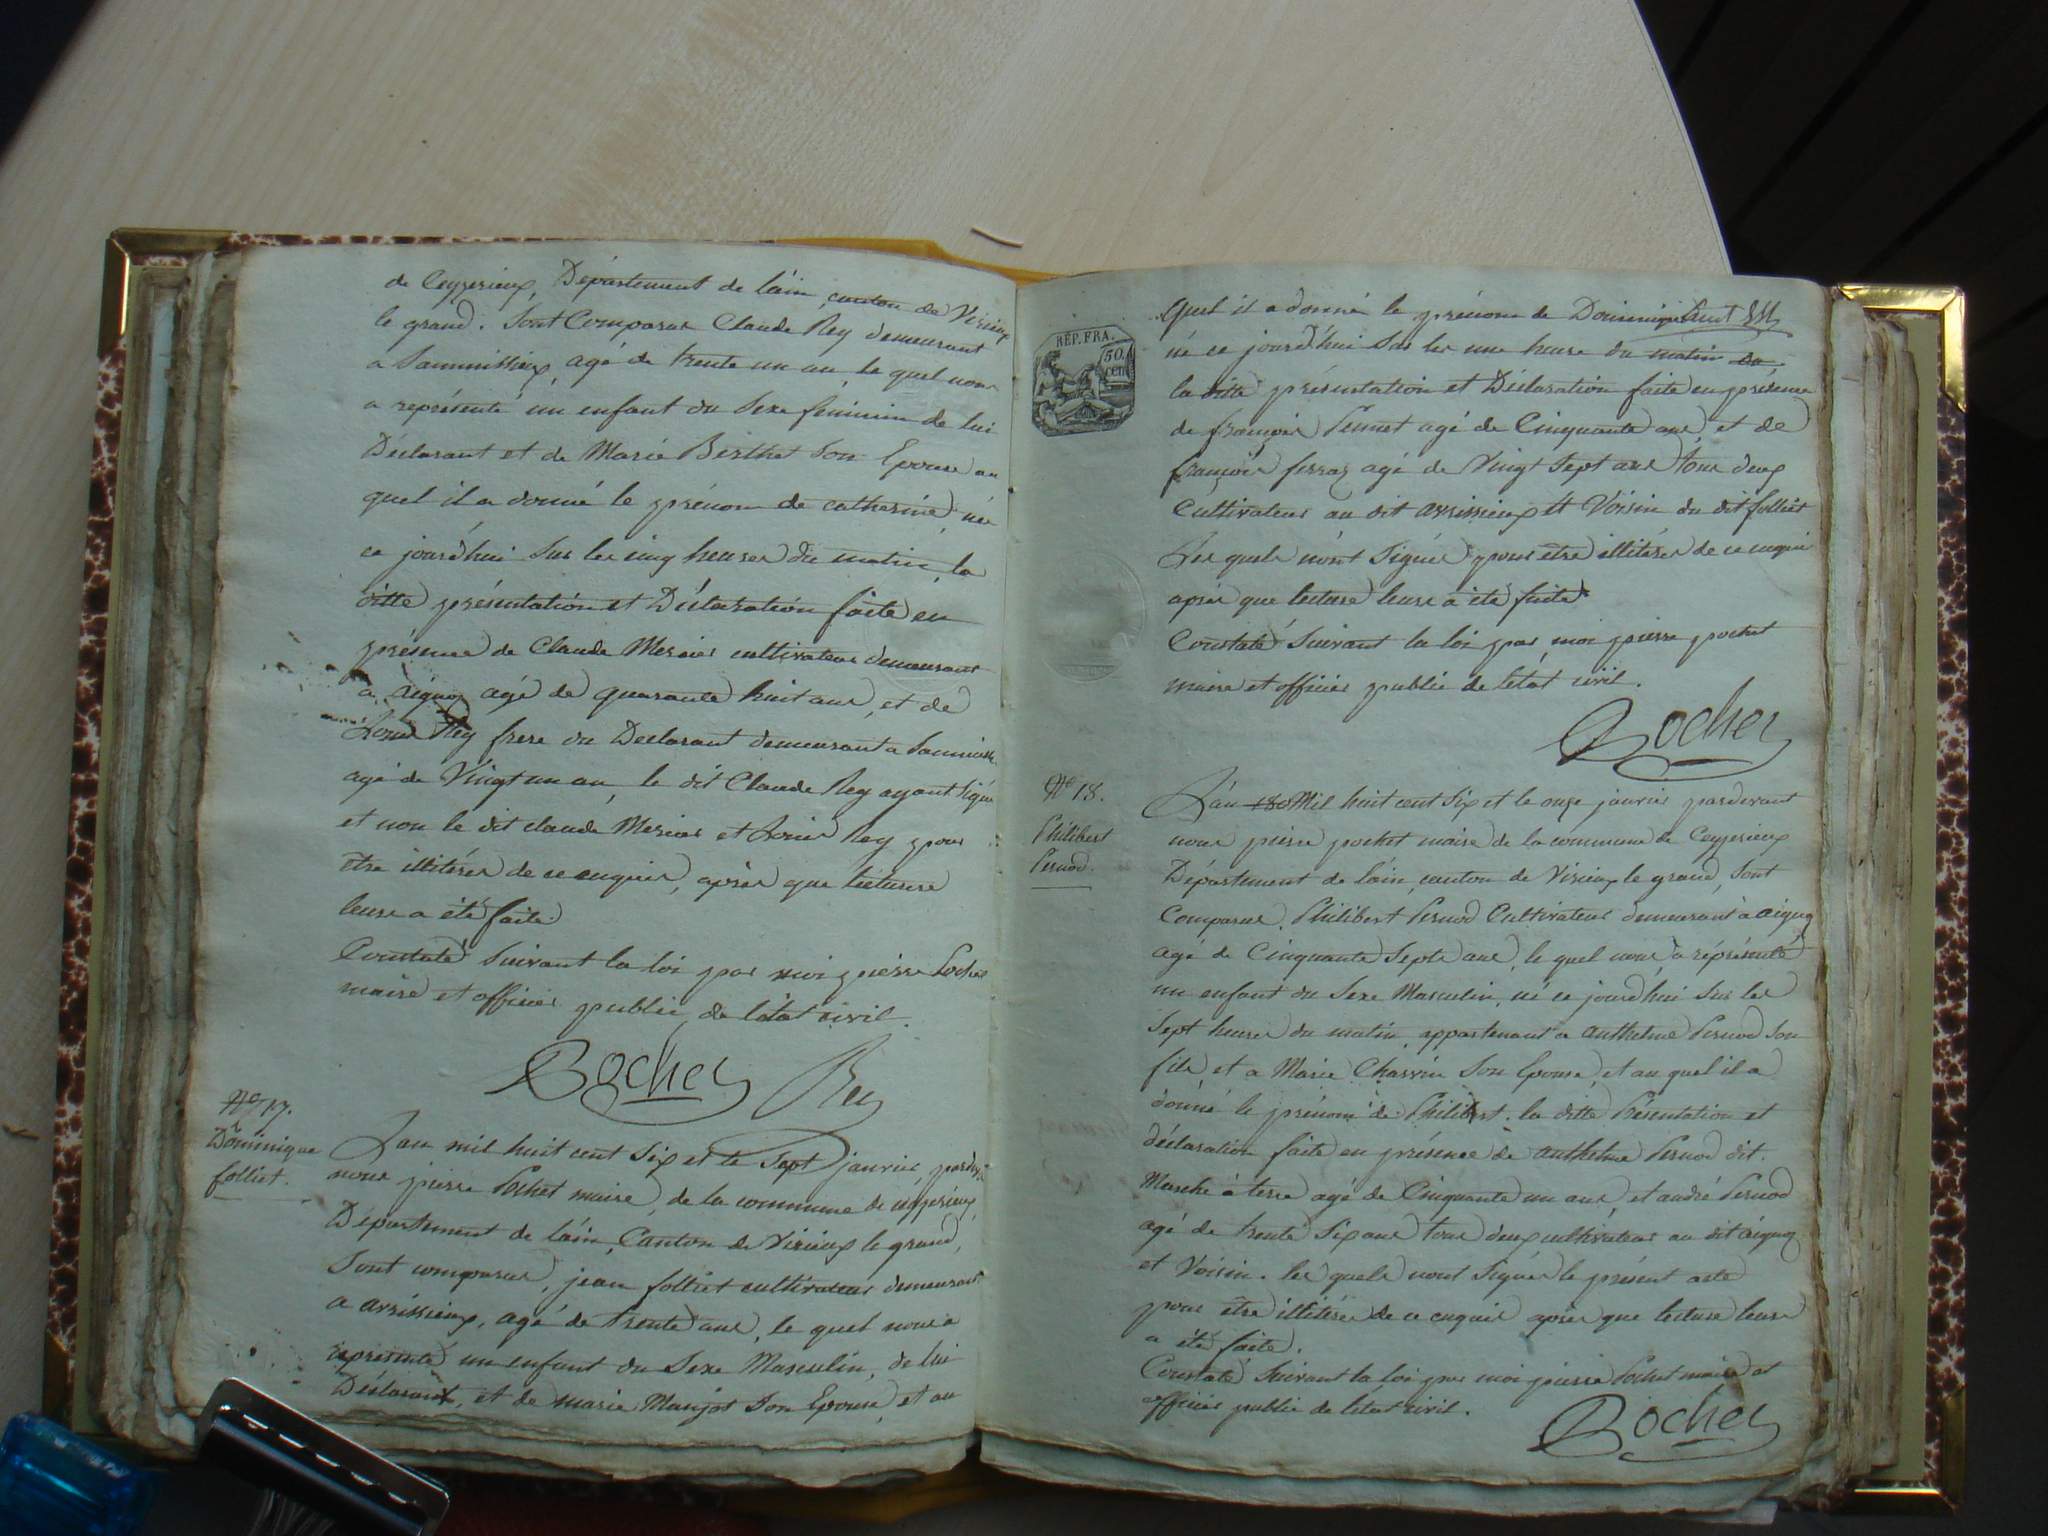 de Ceyzerieux, Département de l'ain, canton de Virieux
le grand. Sont Comparus Claude Rey demeurant
a agé de trente un an, le quel nous
a représenté un enfant du Sexe feminim de lui
Déclarant et de Marie Berthet Son Epouse au
quel il a donné le prénom de catherine, née
ce jourd'hui Sur les cinq heures du matin, la
ditte présentation et Déclaration faite en
présence de Claude Mercier cultivateur demeurant
a aignoz agé de quarante huit ans, et de
Louis Rey frere du Declarant demeurant a
agé de Vingt un an, le dit Claude Rey ayant Signé
et non le dit claude Mercier et Louis Rey pour
être illitérés de ce enquis, après que lecture
leur a été faite.
Constaté Suivant la loi par moi pierre Pochet
maire et officier public de létat civil.
Pochet Rey
No. 17.
Dominique
folliet.
L'an mil huit cent Six et le Sept janvier
nous pierre Pochet maire, de la commune de ceyzerieux,
Département de l'ain, Canton de Virieux le grand,
Sont comparus, jean folliet cultivateur demeurant
a avrissieux, agé de trente ans, le quel nous a
représenté un enfant du Sexe Masculin, de lui
Déclarant, et de marie Manjot Son Epouse, et au
REP. FRA.
50.
cen
quel il a donné le prénom de Dominique
né ce jourd'hui Sur les une heure du matin du
la ditte présentation et Déclaration faite en présence
de françois Pernet agé de Cinquante ans, et de
françois ferraz agé de Vingt Sept ans tous deux
Cultivateur au dit avrissieux et Voisin du dit folliet
Les quels n'ont Signés pour être illitérés de ce enquis
après que lecture leur a été faite
Constaté Suivant la loi par moi pierre pochet
maire et officier public de létat civil.
Pochet
No 18.
Philibert
Pernod.
L'an 180 Mil huit cent Six et le onze janvier pardevant
nous pierre pochet maire de la commune de Ceyzerieux
Département de l'ain, canton de Virieux le grand, Sont
Comparus. Philibert Pernod Cultivateur demeurant à aignoz
agé de Cinquante Septs ans, le quel nous a représenté
un enfant du Sexe Masculin, né ce jourd'hui Sur les
Sept heures du matin, appartenant a anthelme Pernod Son
fils et a Marie Charvin Son Epouse, et au quel il a
donné le prénom de Philibert. la ditte Présentation et
déclaration faite en présence de anthelme Pernod dit.
Marche à terre agé de Cinquante un ans, et andré Pernod
agé de trente Six ans tous deux cultivateur au dit aignoz
et Voisin. les quels nont Signés le présent acte
pour être illitérés de ce enquis après que lecture leur
a été faite.
Constaté Suivant la loi par moi pierre Pochet maire et
officier public de létat civil.
Pochet